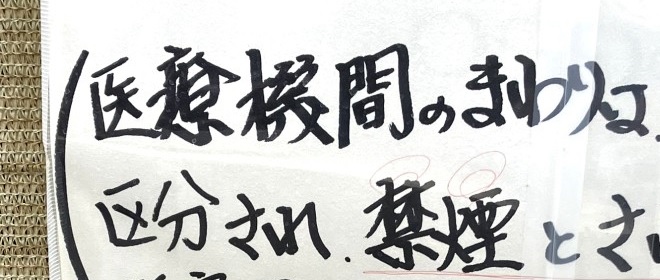 (医療機間のまわりは、
区分され、禁煙とさ